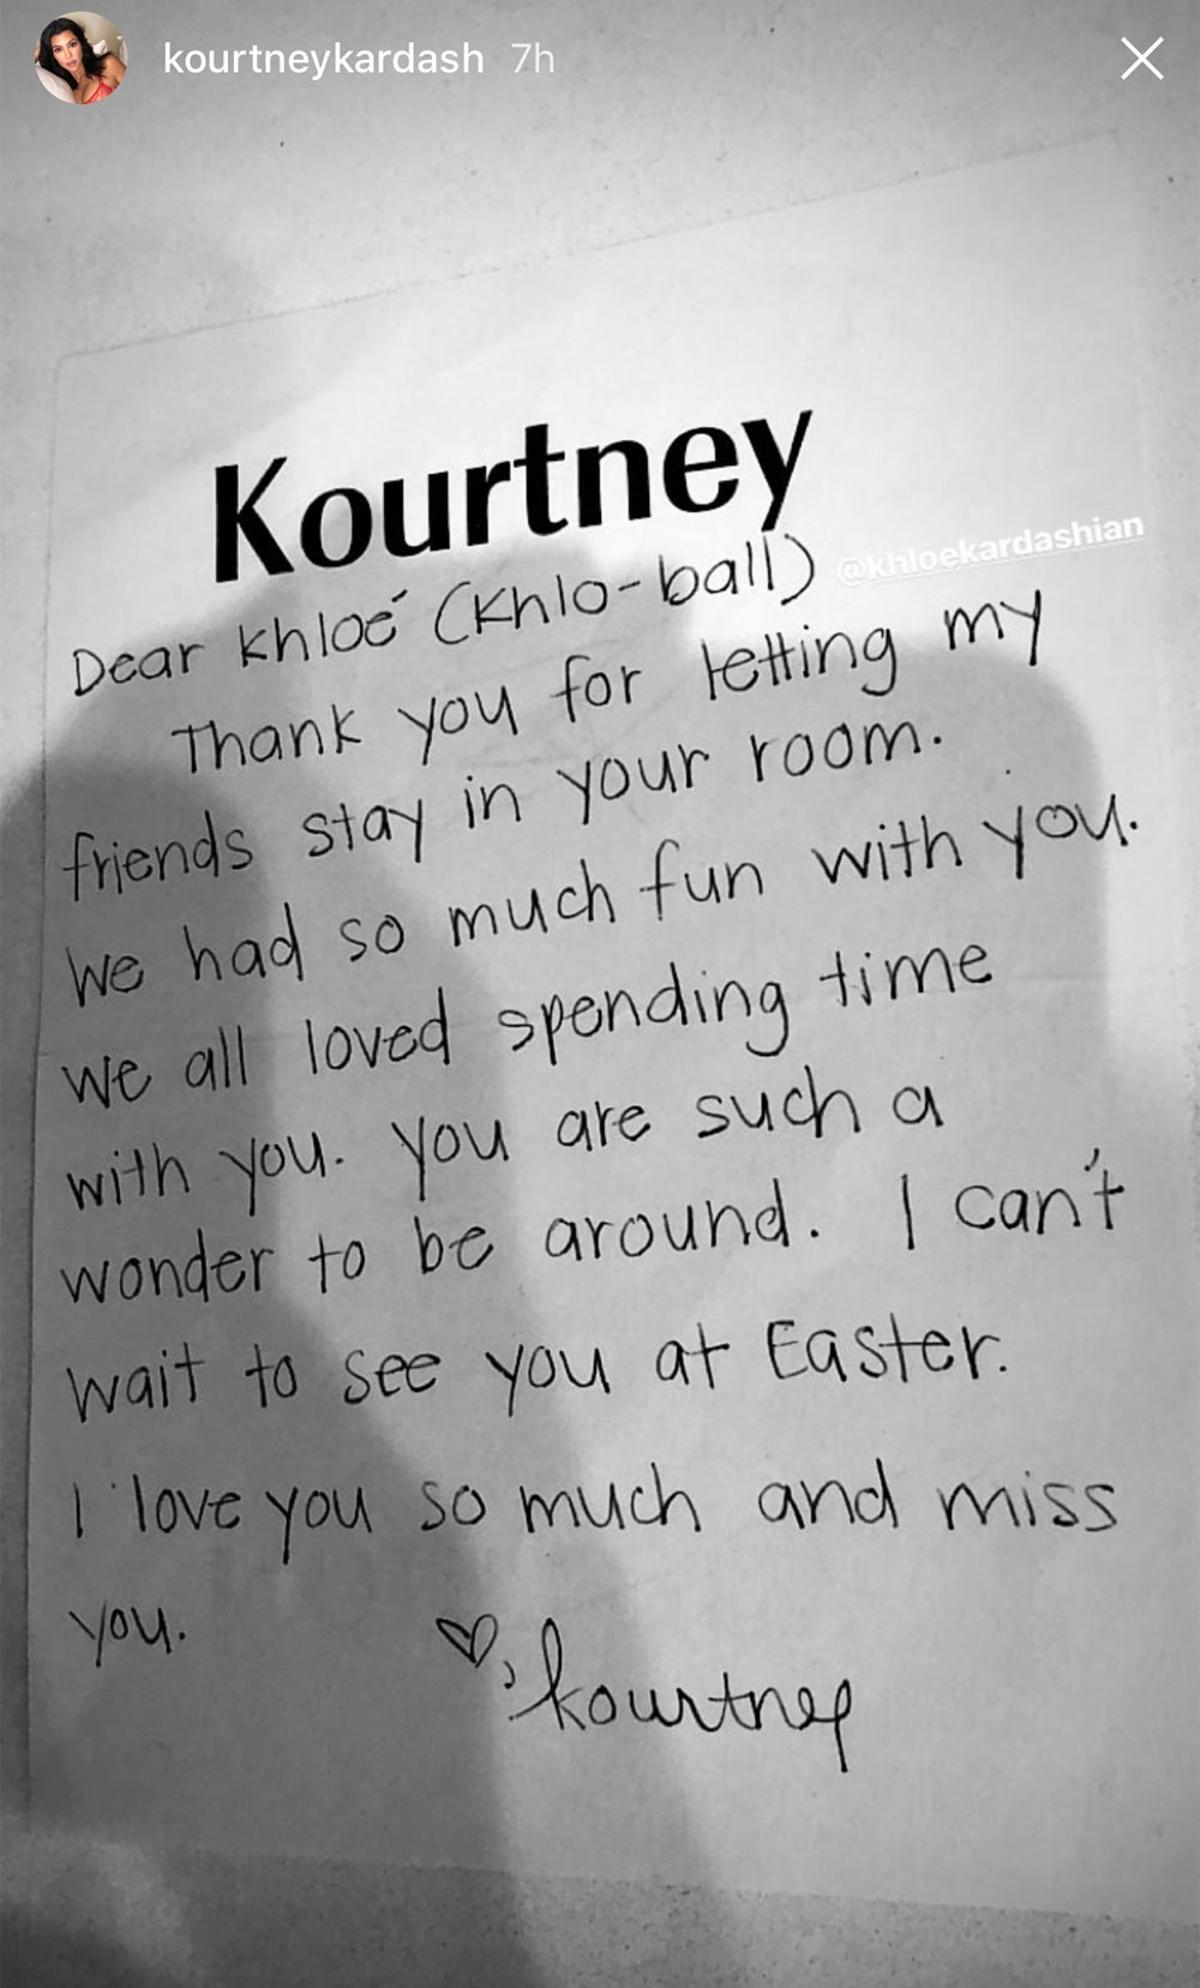 kourtneykardash 7h
Kourtney
Dear Khloé (Khlo-ball) @khloekardashian
Thank you for letting my
friends stay in your room.
We had so much fun with you.
We all loved spending time
with you. You are such a
wonder to be around. I can't
wait to see you at Easter.
I love you so much and miss
you.
♡, Kourtney